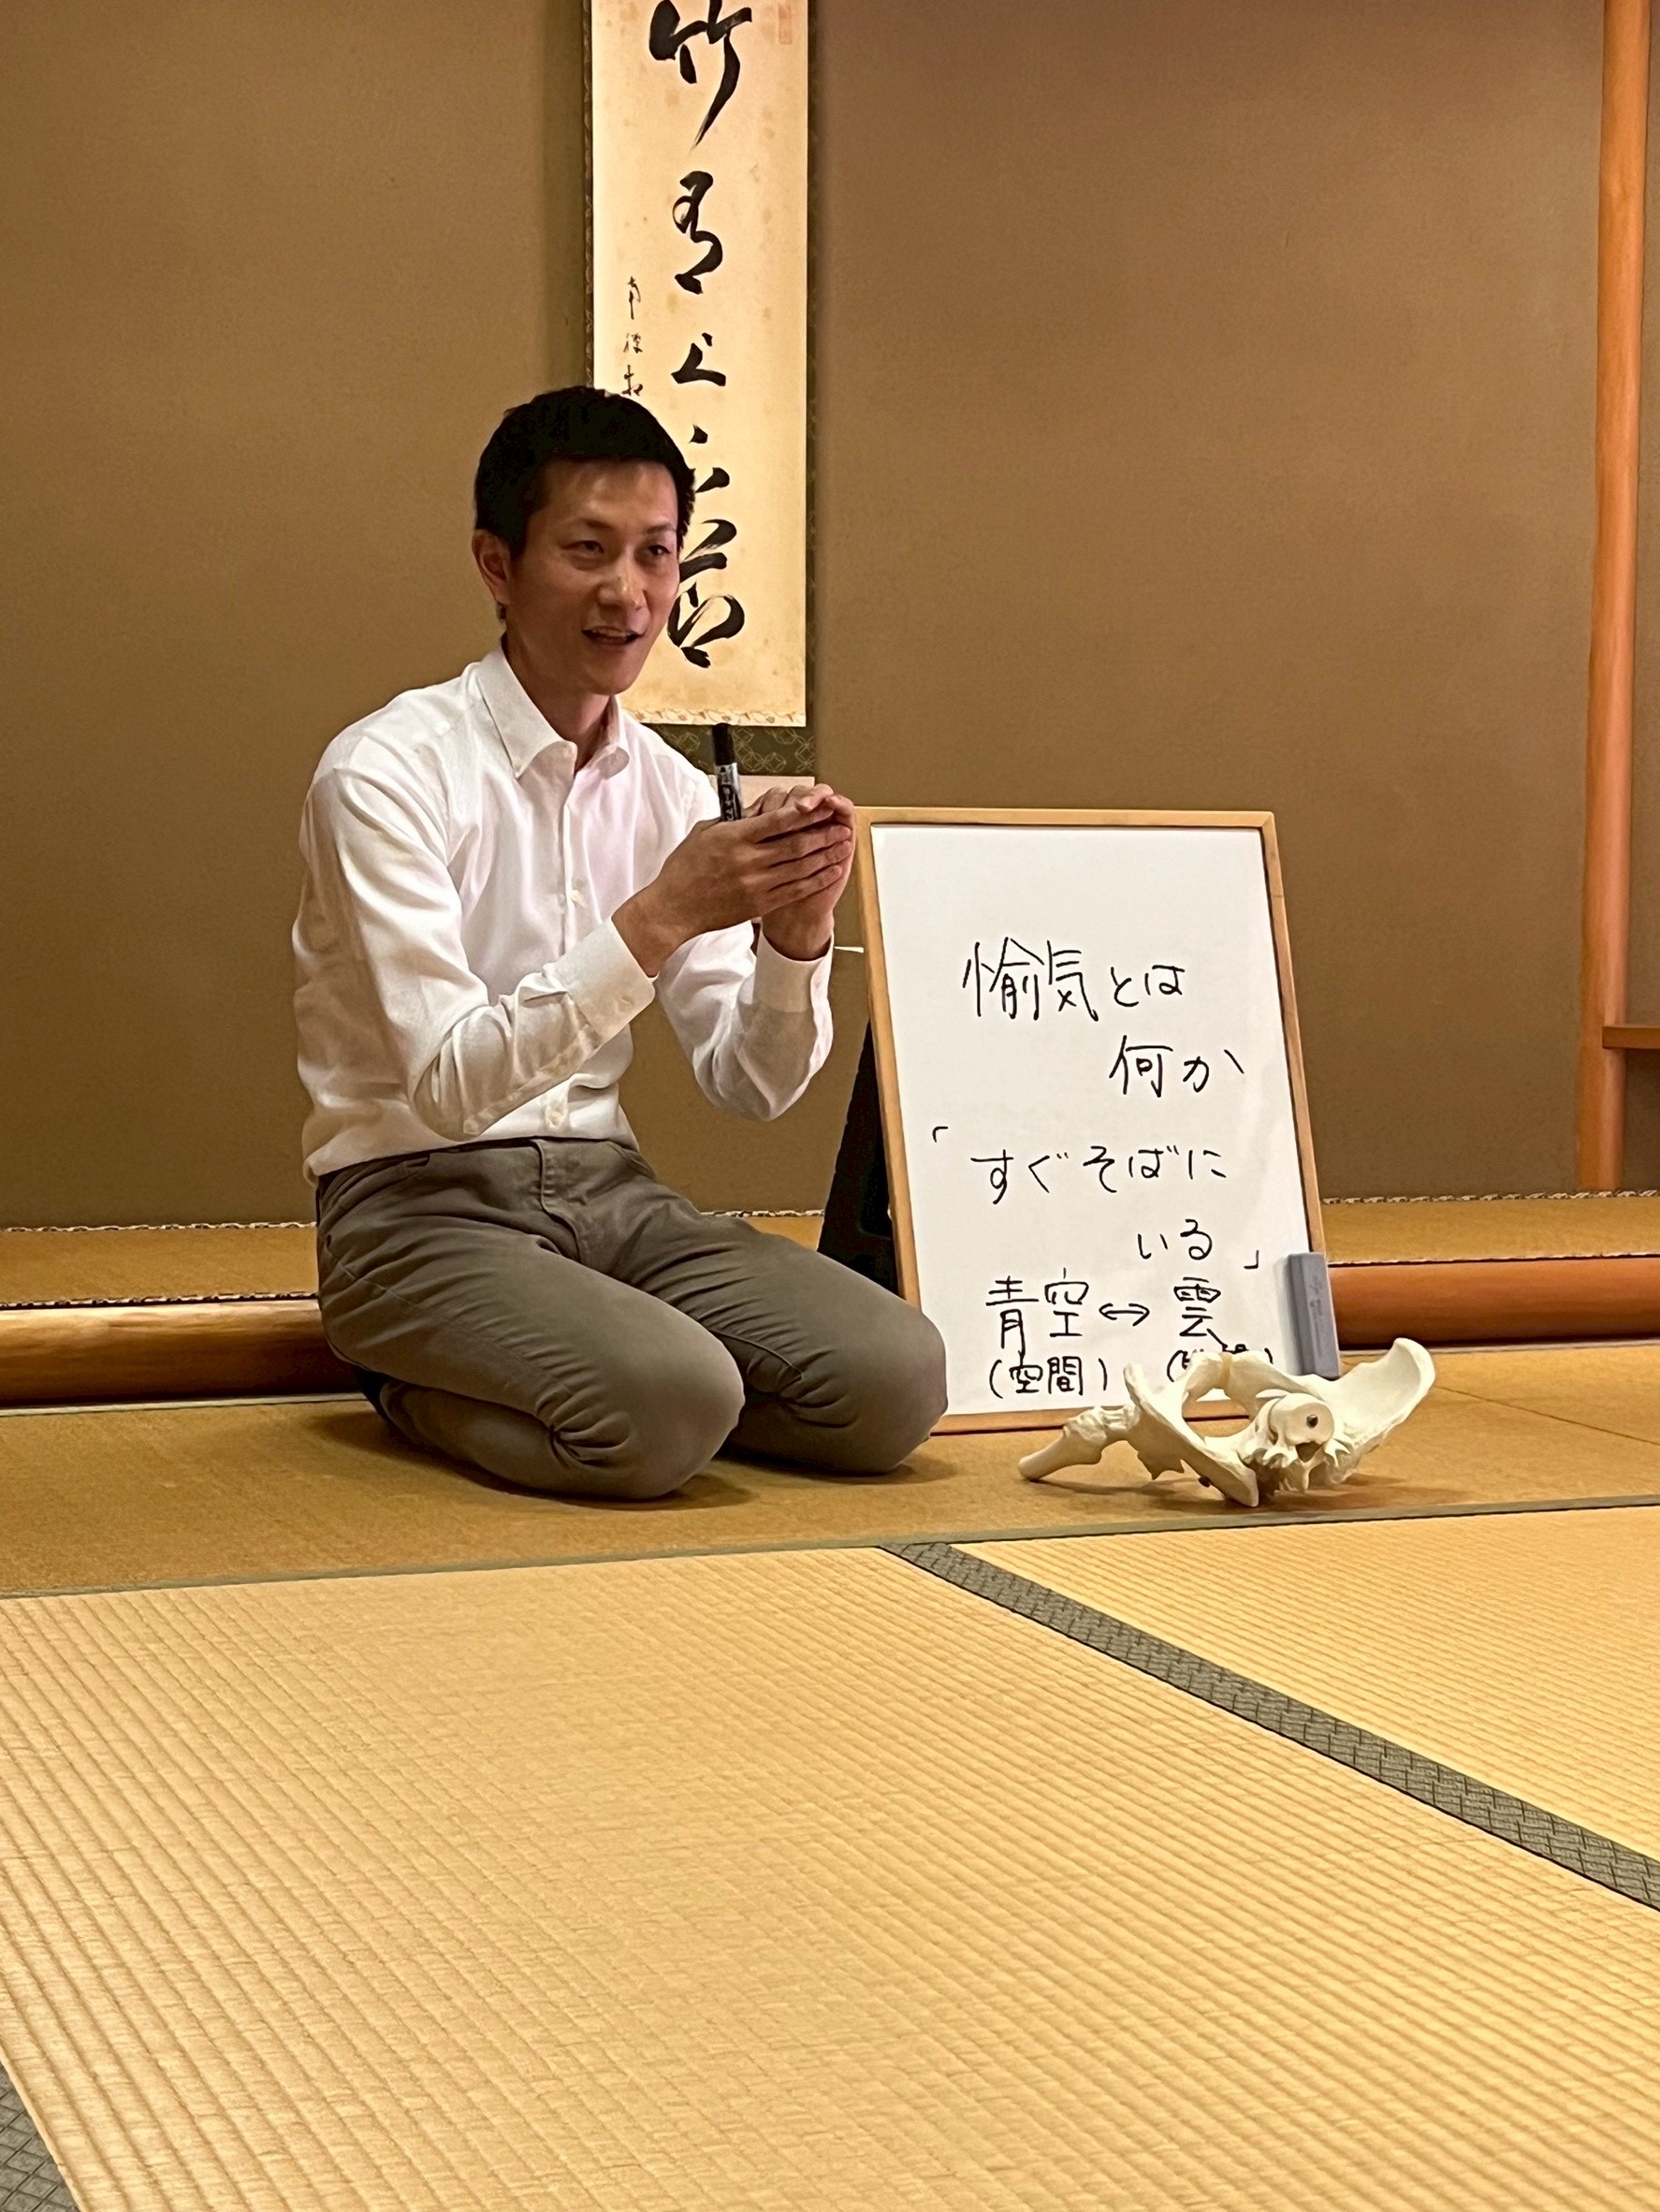 竹有上下節
愉気とは
何か
「すぐそばに
いる」
青空↔雲
(空間)